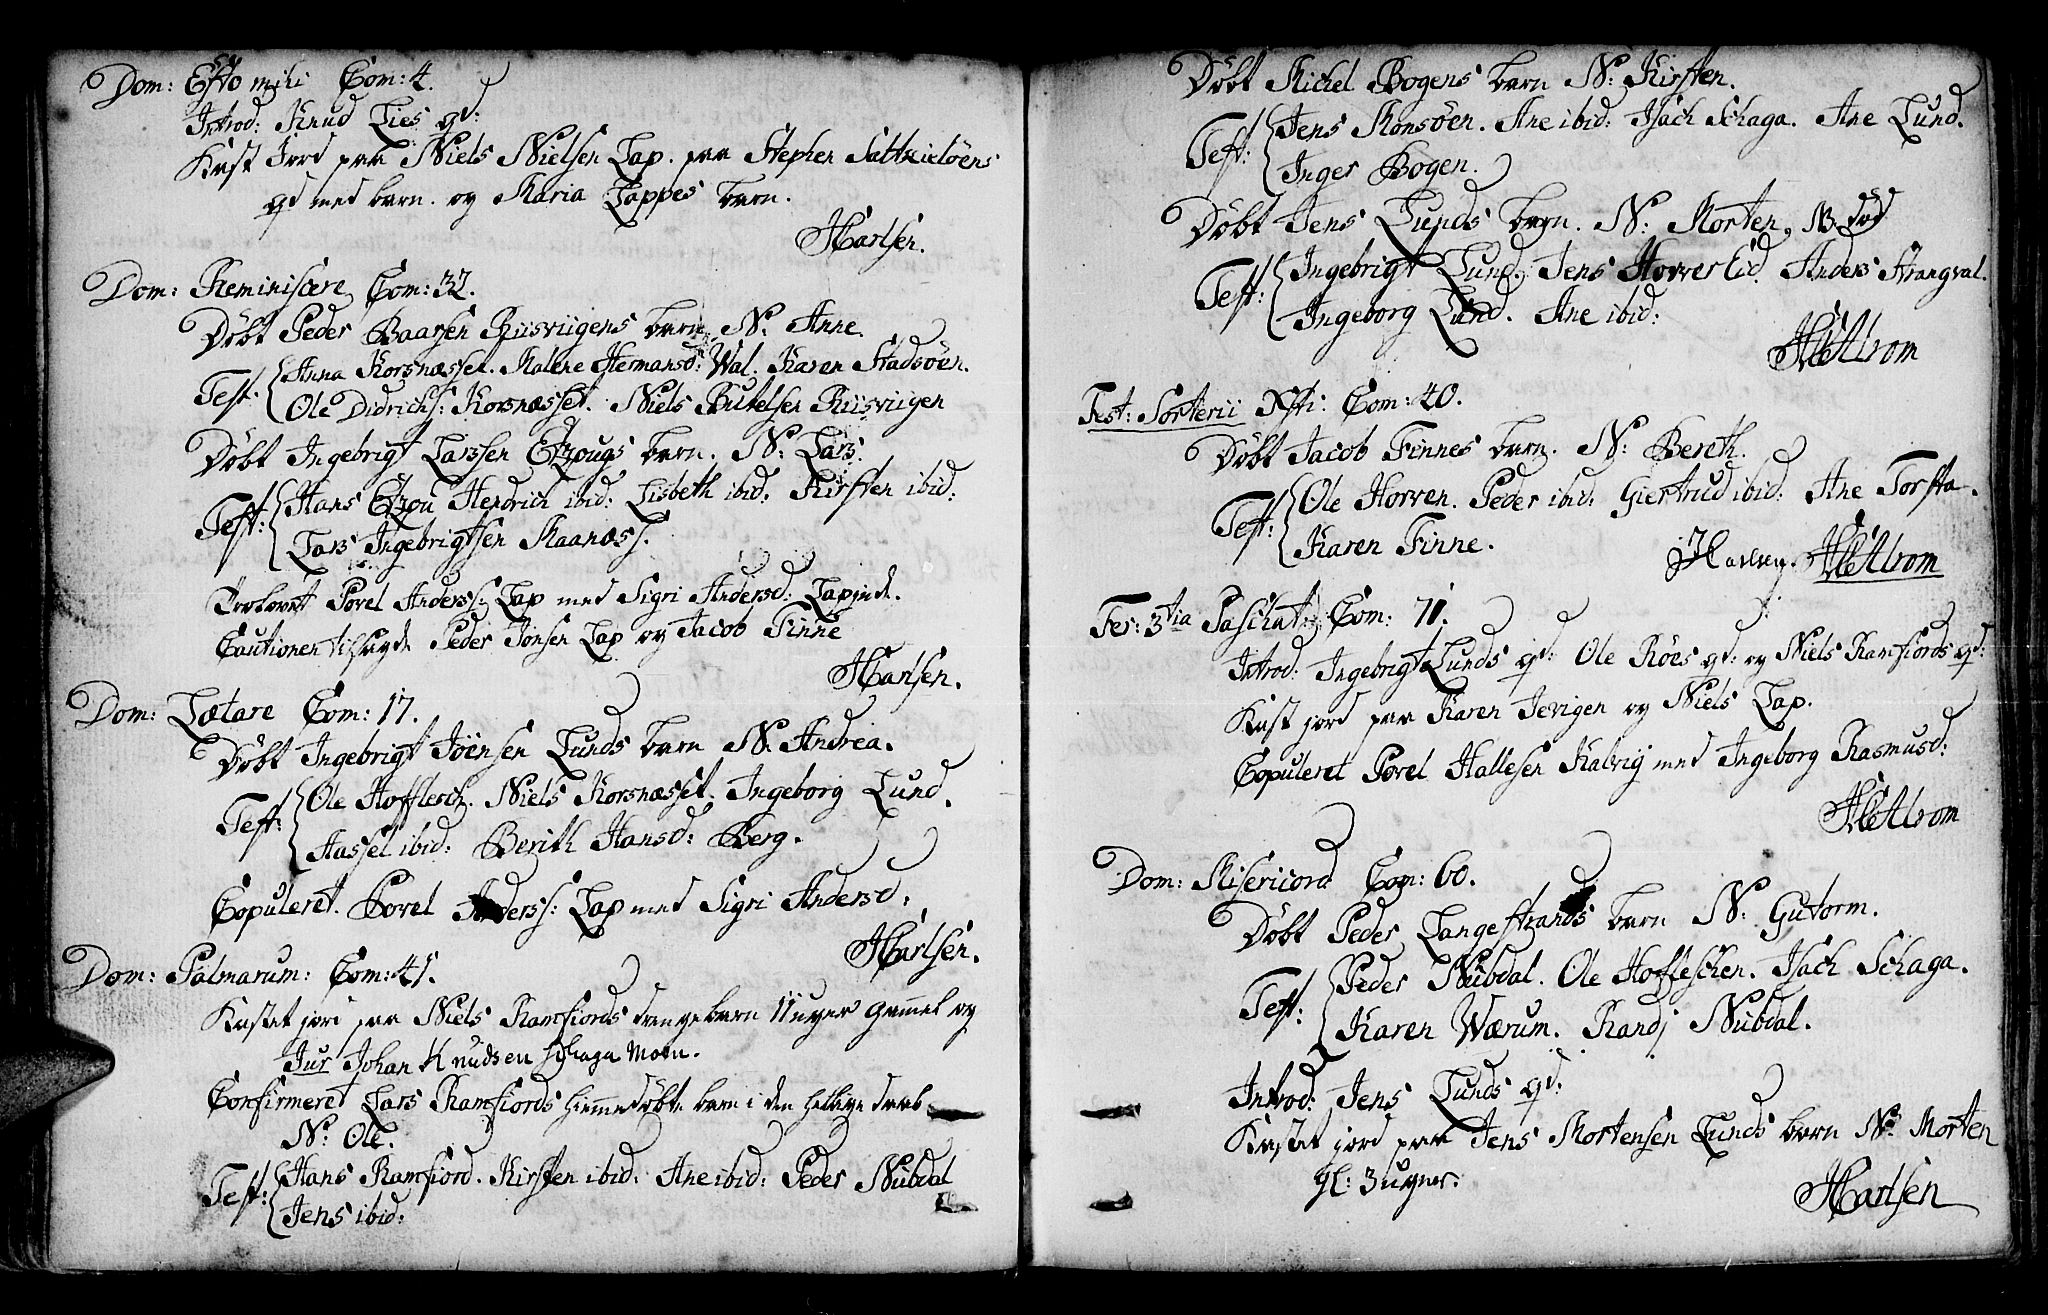 Dom: Esto mihi Com: 4.
Introd: Knud Lies qd:
Kast Jord paa Niels Nielsen Lap. paa Stephen Sattzieløens
qd med barn. og Maria Lappes barn.
HCarlsen.
Dom: Reminiscere, Com: 32.
Døbt Peder Baarsen Riisviigens barn N. Anne.
Test: Anna Korsnæsset. Malene Hermansd: Wal. Karen Stadsøen.
Ole Didrichs: Korsnæsset. Niels Butelsen Riisviigen
Døbt Ingebrigt Larssen Elzougs barn. N: Lars.
Test: Hans Elzou Hendrich ibid: Lisbeth ibid: Kirsten ibid:
Lars Ingebrigtsen Maanæss.
Trolovet Povel Anderss: Lap med Sigri Andersd: Lapinde.
Cautionen tilsagde Peder Jonsen Lap og Jacob Finne
HCarlsen.
Dom: Lætare Com: 17.
Døbt Ingebrigt Joensen Lunds barn N: Andrea.
Test: Ole Hofflesch. Niels Korsnæsset. Ingeborg Lund.
Hassel ibid: Berith Hansd: Berg.
Copuleret. Povel Anderss: Lap med Sigri Andersd:
HCarlsen.
Dom: Palmarum: Com: 41.
Kastet jord paa Niels Ramfiords drengebarn 11 uger gammel og
Jur Johan Knudsen Schaga Moen.
Confirmeret Lars Ramfiords hiemmedøbte barn i den hellige daab
N: Ole.
Test: Hans Ramfiord. Kirsten ibid: Ane ibid: Peder Nubdal
Jens ibid:
Døbt Michel Bogens barn N: Kirsten.
Test: Jens Monsøen. Ane ibid: Isach Schaga. Ane Lund.
Inger Bogen.
Døbt Jens Lunds barn. N: Morten, NB. død
Test: Ingebrigt Lund. Jens Horver Eid. Anders Strangval.
Ingeborg Lund. Ane ibid:
Fest: Xsti. Com: 40.
Døbt Jacob Finnes barn. N: Berith.
Test: Ole Horven. Peder ibid: Giertrud ibid: Ane Torsta.
Karen Finne.
Fer: 3tia Paschat: Com: 71.
Introd: Ingebrigt Lunds qd: Ole Røes qd: og Niels Ramfiords qd:
Kast jord paa Karen Jevigen og Niels Lap.
Copuleret Povel Hallesen Kalvig med Ingeborg Rasmusd:
Dom: Misericord Com: 60.
Døbt Peder Langestrands barn N: Gutorm.
Test: Peder Nubdal. Ole Hofleschen. Isach Schaga.
Karen Wærum. Randj Nubdal.
Introd: Jens Lunds qd:
Kastet jord paa Jens Mortensen Lunds barn N: Morten
gl: 3 uger.
HCarlsen